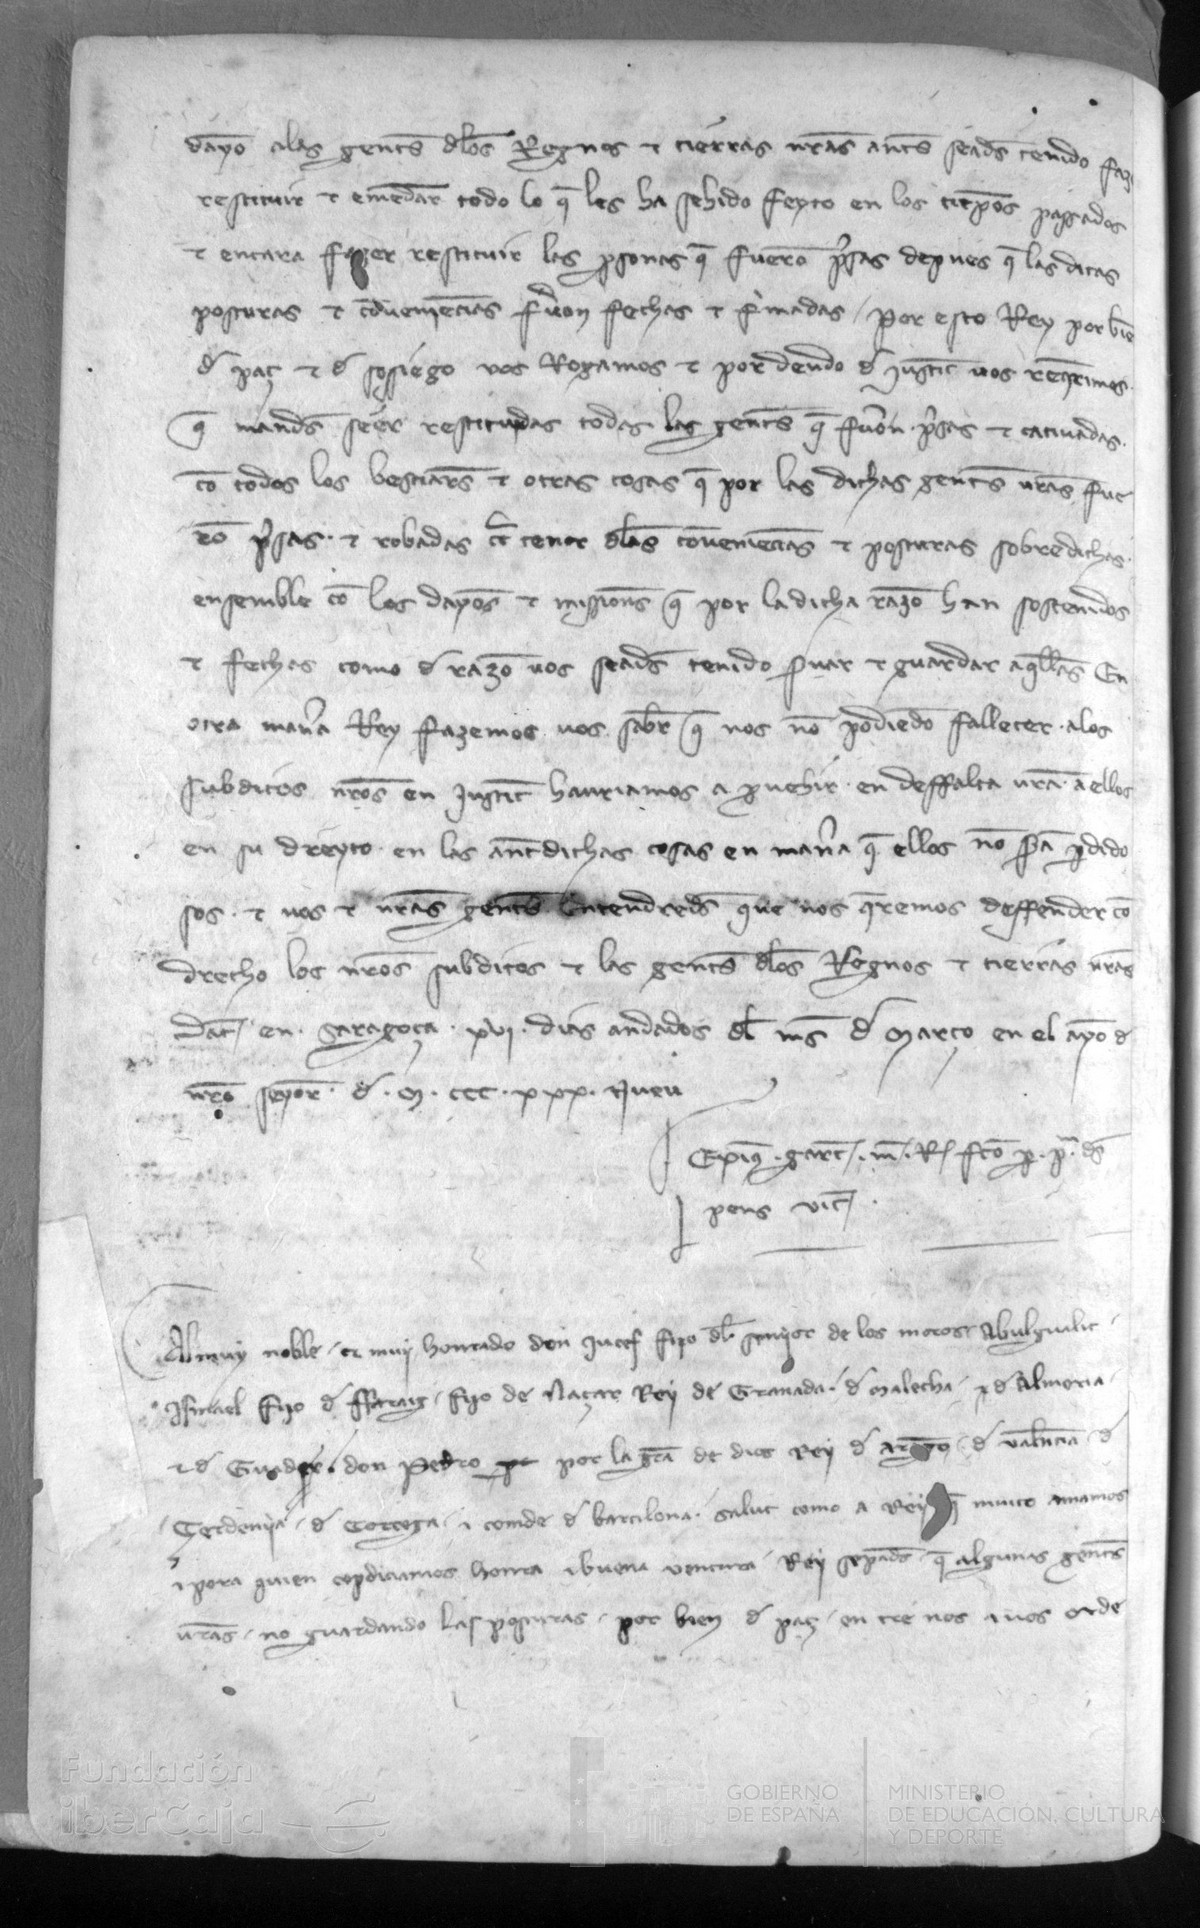 dayo alas gents dlos Regnos et tierras nras ants seads tenido faz
restituir et emedar todo lo q les ha sehido feyto en los tiepos passados
et encara fazer restituir las psonas q fuero psas depues q las ditas
posturas et coveniecias fuon fechas et fmadas / Por esto Rey por bie
d paç et d sossiego vos Rogamos et por deudo d justic vos reqrimos
q mands seer restituydas todas las gents q fuon psas et cativadas
co todos los bestiars et otras cosas q por las dichas gents vras fue
ro psas et robadas et tenor dlas coveniecias et posturas sobredichas
ensemble co los dayos et missions q por la dicha razo han sostenidos
et fechas como d razo vos seads tenido svar et guardar aqllas En
otra mana Rey fazemos vos sabr q nos no podiedo fallecer alos
subditos nros en justic hauriamos a pvehir en deffalta vra a ellos
en su dreyto en las antdichas cosas en mana q ellos no sia pdido
sos et vos et vras gents Entendreds que nos qremos deffender co
drecho los nros subditos et las gents dlos Regnos et tierras nras
Dat en Saragoça xvi dias andados dl ms d março en el ayo d
nro seyor d M CCC xxx Nueu
Eximus garc m R fco p p ds
pens vic
Al muy noble / et muy honrado don Jucef fijo dl senyor de los moros Abulgualit
Ismael fijo d ffaraig / fijo de Naçar Rey de Granada d Malecha / et d Almeria
et d Guadix don Pedro por la gra de dios Rey d arago d valencia d
Cerdenya d Corcega et comde d barcelona salut como a Rey q muito amamos
et pora quien cobdiciamos honra et buena ventura Rey sepads q algunas gents
vras / no guardando las posturas por bien d paç / en tre nos et vos orde
Fundación
iberCaja
GOBIERNO
DE ESPAÑA
MINISTERIO
DE EDUCACIÓN, CULTURA
Y DEPORTE